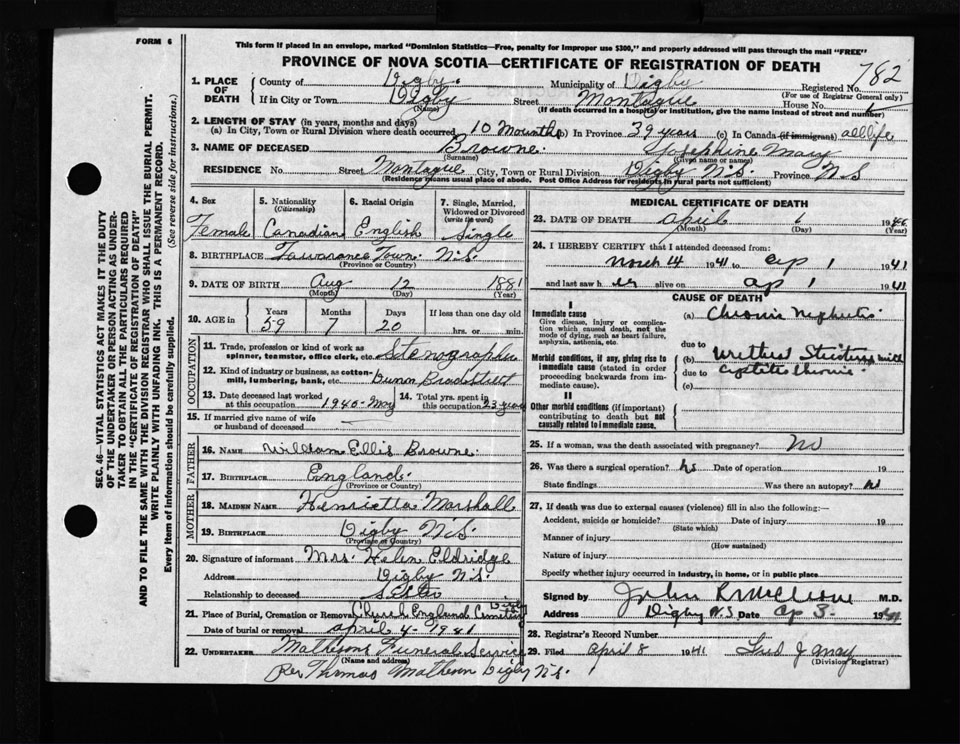 FORM 6
This form if placed in an envelope, marked "Dominion Statistics—Free, penalty for improper use $300," and properly addressed will pass through the mail "FREE"
PROVINCE OF NOVA SCOTIA—CERTIFICATE OF REGISTRATION OF DEATH
SEC. 46—VITAL STATISTICS ACT MAKES IT THE DUTY
OF THE UNDERTAKER OR PERSON ACTING AS UNDER-
TAKER TO OBTAIN ALL THE PARTICULARS REQUIRED
IN THE "CERTIFICATE OF REGISTRATION OF DEATH"
AND TO FILE THE SAME WITH THE DIVISION REGISTRAR WHO SHALL ISSUE THE BURIAL PERMIT.
WRITE PLAINLY WITH UNFADING INK. THIS IS A PERMANENT RECORD.
Every item of information should be carefully supplied. (See reverse side for instructions.)
1. PLACE OF DEATH
County of Digby. Municipality of Digby Registered No. 782
(For use of Registrar General only)
If in City or Town Digby Street Montague House No.
(If death occurred in a hospital or institution, give the name instead of street and number)
2. LENGTH OF STAY (in years, months and days)
(a) In City, Town or Rural Division where death occurred 10 Mounths (b) In Province 39 years (c) In Canada (if immigrant) all life
3. NAME OF DECEASED Browne. Josephine Mary
(Surname) (Given name or names)
RESIDENCE No. Street Montague City, Town or Rural Division Digby N.S. Province N.S
(Residence means usual place of abode. Post Office Address for residents in rural parts not sufficient)
4. Sex Female
5. Nationality (Citizenship) Canadian
6. Racial Origin English
7. Single, Married, Widowed or Divorced (write the word) Single
8. BIRTHPLACE Town. N.S.
(Province or Country)
9. DATE OF BIRTH Aug 12 1881
(Month) (Day) (Year)
10. AGE in Years 59 Months 7 Days 20 If less than one day hrs. or min.
OCCUPATION
11. Trade, profession or kind of work as spinner, teamster, office clerk, etc. Stenographer
12. Kind of industry or business, as cotton-mill, lumbering, bank, etc. Dunn Bradstreet
13. Date deceased last worked at this occupation 1940-May
14. Total yrs. spent in this occupation 23 years
15. If married give name of wife or husband of deceased —
FATHER
16. NAME William Ellis Browne.
17. BIRTHPLACE England.
(Province or Country)
MOTHER
18. MAIDEN NAME Henrietta Marshall
19. BIRTHPLACE Digby N.S
(Province or Country)
20. Signature of informant Mrs. Helen Eldridge
Address Digby N.S.
Relationship to deceased Sister
21. Place of Burial, Cremation or Removal Church England Cemetery Digby
Date of burial or removal April 4-1941
22. UNDERTAKER Mathesons Funeral Service
(Name and address)
Per Thomas Matheson Digby N.S.
MEDICAL CERTIFICATE OF DEATH
23. DATE OF DEATH April 1
(Month) (Day) (Year)
24. I HEREBY CERTIFY that I attended deceased from:
March 14 1941 to Ap 1 1941
and last saw her alive on Ap 1 1941
CAUSE OF DEATH
I
Immediate cause
Give disease, injury or complication which caused death, not the mode of dying, such as heart failure, asphyxia, asthenia, etc.
(a) Chronic Nephritis
due to
Morbid conditions, if any, giving rise to immediate cause (stated in order proceeding backwards from immediate cause).
(b) Urethral Stricture with
due to
(c) cystitis chronic
II
Other morbid conditions (if important) contributing to death but not causally related to immediate cause.
25. If a woman, was the death associated with pregnancy? No
26. Was there a surgical operation? No Date of operation 19
State findings Was there an autopsy? No
27. If death was due to external causes (violence) fill in also the following:—
Accident, suicide or homicide? Date of injury 19
(State which)
Manner of injury
(How sustained)
Nature of injury
Specify whether injury occurred in industry, in home, or in public place
Signed by John R M.D.
Address Digby N.S Date Ap 3 1941
28. Registrar's Record Number
29. Filed April 8 1941 Fred J May
(Division Registrar)